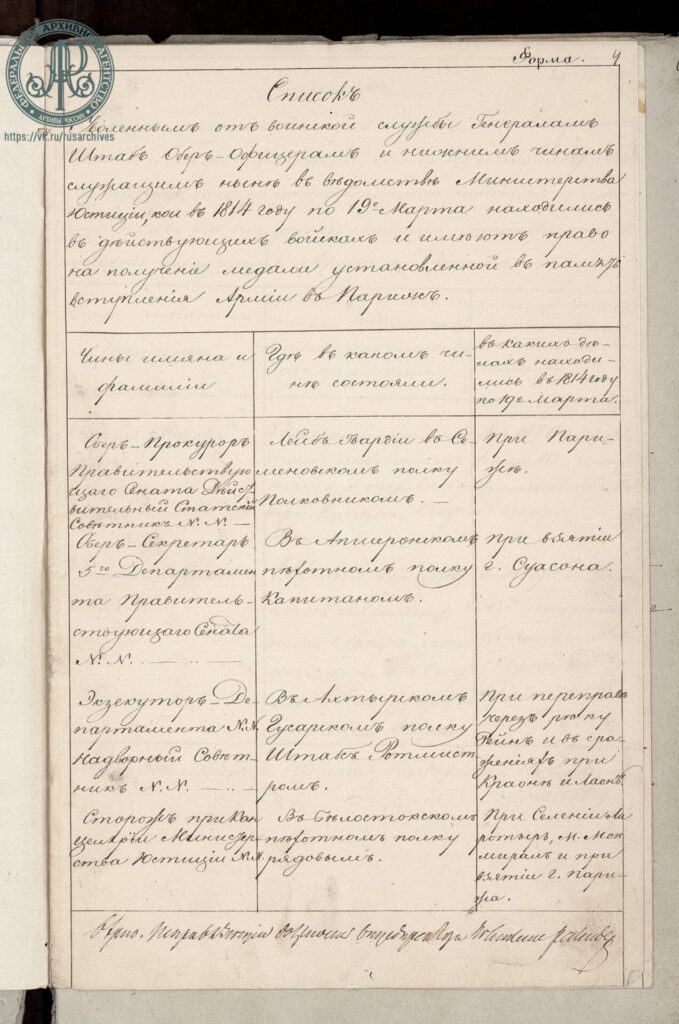 ФЕДЕРАЛЬНОЕ АРХИВНОЕ АГЕНТСТВО
АРХИВЫ РОССИИ
https://vk.ru/rusarchives
Форма. 4
Списокъ
Уволеннымъ отъ воинской службы Генераламъ
Штабъ Оберъ-Офицерамъ и нижнимъ чинамъ
служащимъ нынѣ въ вѣдомствѣ Министерства
Юстиціи, кои въ 1814 году по 19е Марта находились
въ дѣйствующихъ войскахъ и имѣютъ право
на полученіе медали установленной въ память
вступленія Арміи въ Парижъ.
Чины имяна и
фамиліи
Гдѣ въ какомъ чи-
нѣ состояли.
въ какихъ дѣ-
лахъ находи-
лись въ 1814 году
по 19е Марта.
Оберъ-Прокуроръ
Правительствую
щаго Сената Дѣйст
вительный Статскій
Совѣтникъ N. N. —
Лейбъ Гвардіи въ Се-
меновскомъ полку
Полковникомъ. —
При Пари-
жѣ.
Оберъ-Секретарь
5го Департамен
та Правитель-
ствующаго Сената
N. N.
Въ Апшеронскомъ
пѣхотномъ полку
Капитаномъ.
При взятіи
г. Суасона.
Экзекуторъ Де-
партамента N.N.
Надворный Совѣт-
никъ N. N.
Въ Ахтырскомъ
Гусарскомъ полку
Штабсъ Ротмист
ромъ.
При переправѣ
чрезъ рѣку
Рейнъ и въ сра-
женіяхъ при
Краонѣ и Лаонѣ.
Сторожъ при Кан
целяріи Министер
ства Юстиціи N.N.
Въ Бѣлостокскомъ
пѣхотномъ полку
рядовымъ.
При Селеніи Ла
ротьеръ, м. Мон
миралъ и при
взятіи г. Пари-
жа.
Вѣрно. Исправляющій должность